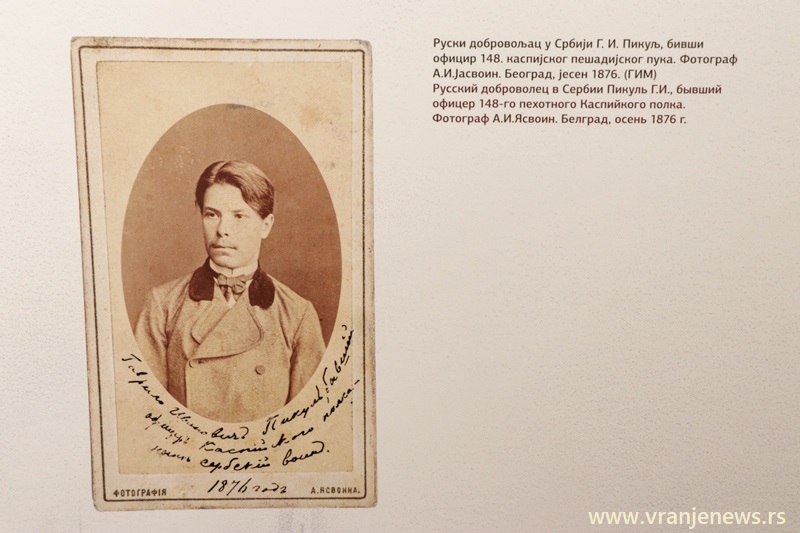 Руски добровољац у Србији Г. И. Пикуљ, бивши
официр 148. каспијског пешадијског пука. Фотограф
А.И.Јасвоин. Београд, јесен 1876. (ГИМ)
Русский доброволец в Сербии Пикуль Г.И., бывший
офицер 148-го пехотного Каспийкого полка.
Фотограф А.И.Ясвоин. Белград, осень 1876 г.
Гаврило Ивановичъ Пикуль бывшій
офицеръ Каспійского полка
нынѣ сербскій воинъ.
1876 годъ
ФОТОГРАФІЯ А.ЯСВОИНА.
www.vranjenews.rs